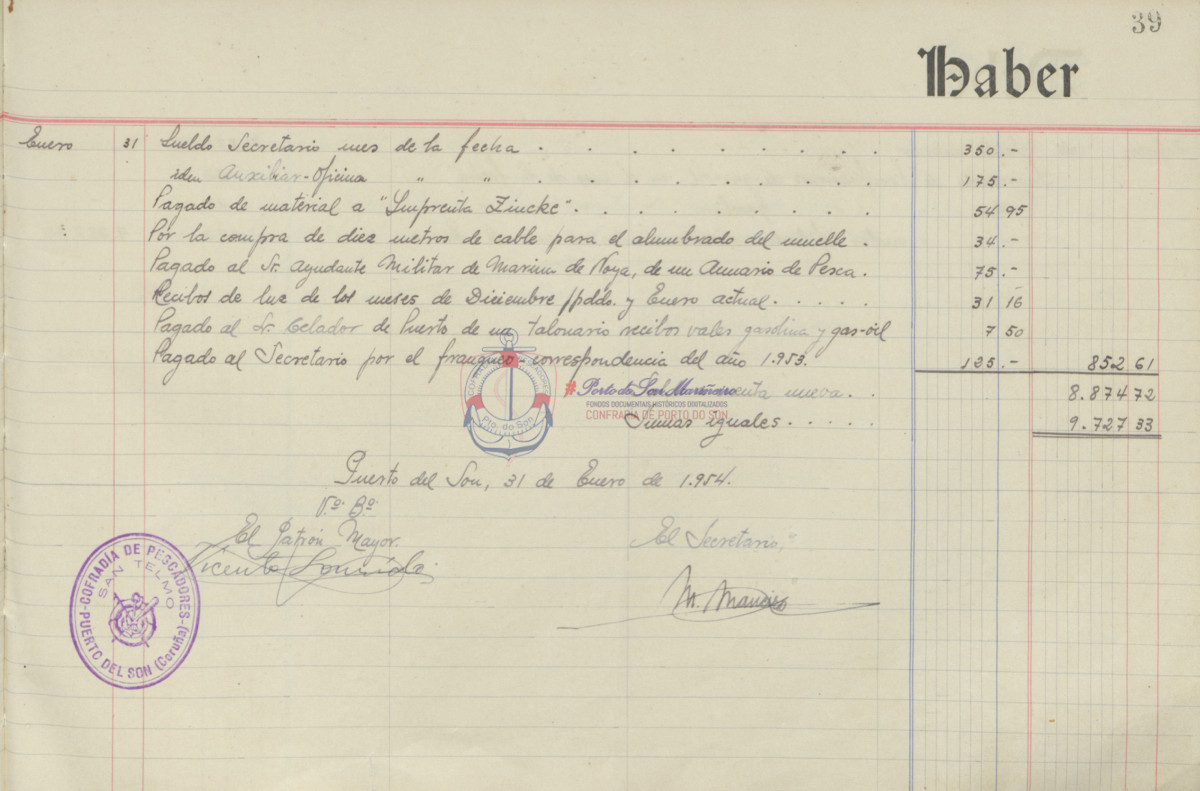 39
Haber
Enero 31 Sueldo Secretario mes de la fecha . . . . . . . . 350 .-
iden Auxiliar-Oficina " " . . . . . . . . 175 .-
Pagado de material a "Imprenta Zincke" . . . . . . . 54 95
Por la compra de diez metros de cable para el alumbrado del muelle . 34 .-
Pagado al Sr. Ayudante Militar de Marina de Noya, de un Anuario de Pesca . 75 .-
Recibos de luz de los meses de Diciembre ppdo. y Enero actual . . . . . 31 16
Pagado al Sr. Celador de Puerto de un talonario recibos vales gasolina y gas-oil 7 50
Pagado al Secretario por el franqueo-correspondencia del año 1.953. 125 .- 852 61
cuenta nueva . . 8.874 72
Sumas iguales . . . . . 9.727 33
#Porto do Son Mariñeiro
FONDOS DOCUMENTAIS HISTÓRICOS DIGITALIZADOS
CONFRARÍA DE PORTO DO SON
Pto. do Son
Puerto del Son, 31 de Enero de 1.954.
Vº Bº
El Patrón Mayor. El Secretario,
Vicente
COFRADÍA DE PESCADORES
SAN TELMO
PUERTO DEL SON (Coruña)